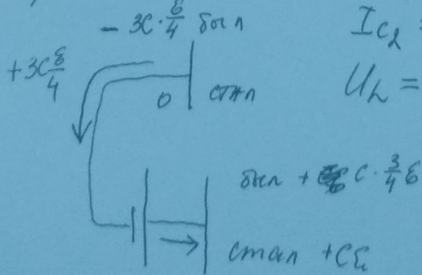 - 3C · ℰ/4 был
+3C ℰ/4
I_C₂ =
0 стал
U_L =
был + C · 3/4 ℰ
стал + Cℰ